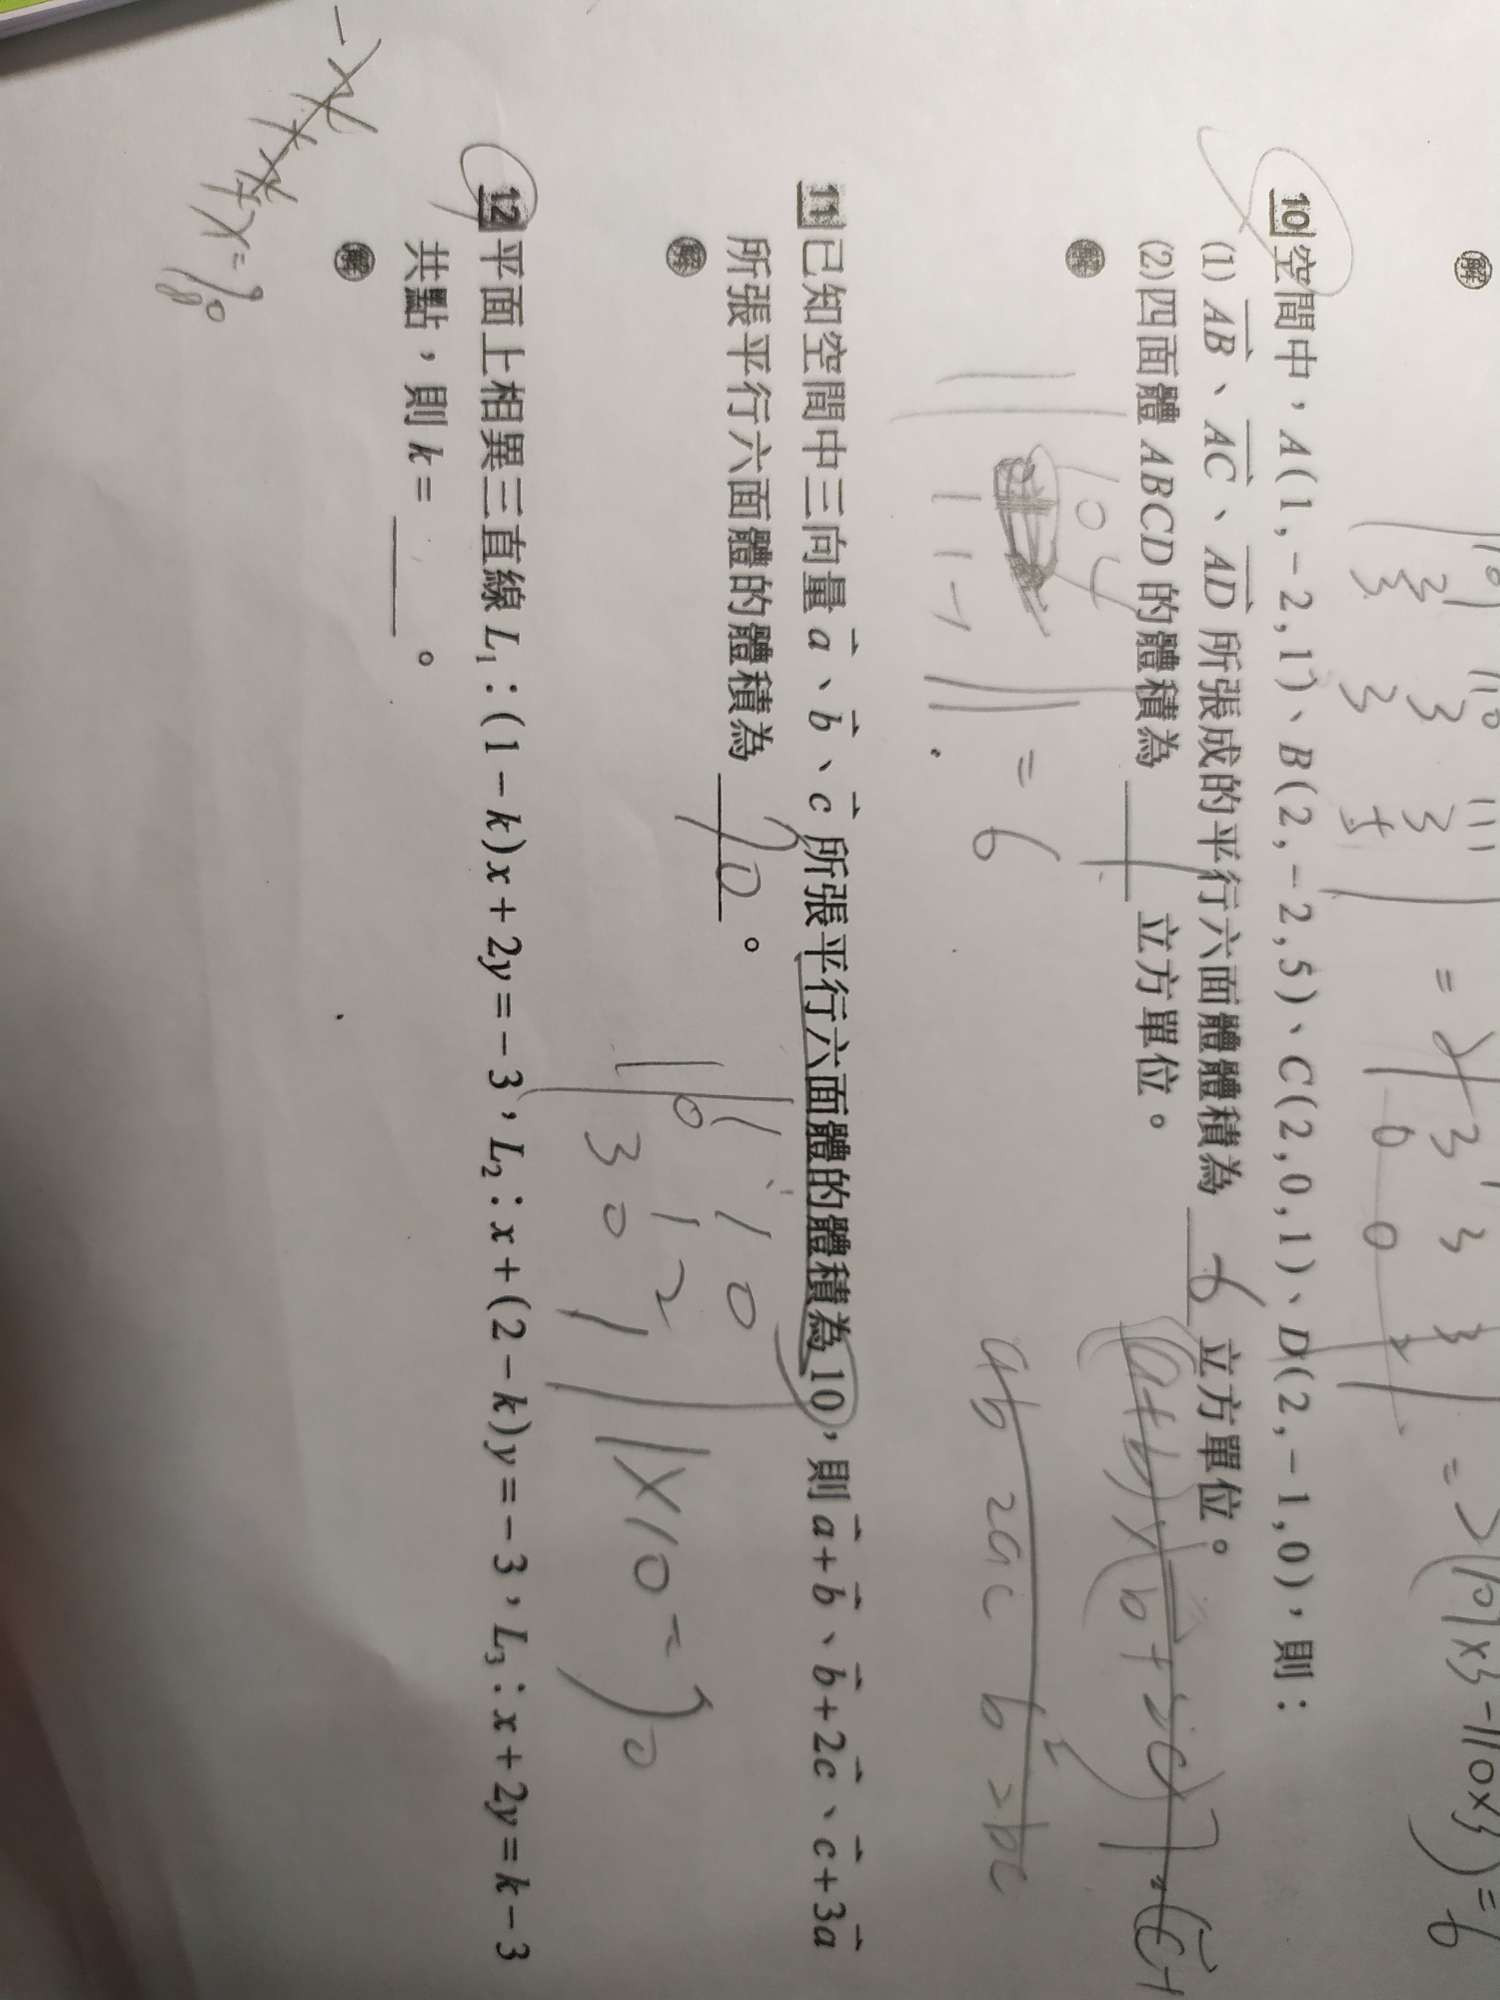 解
= 6
10 空間中，A(1,-2,1)、B(2,-2,5)、C(2,0,1)、D(2,-1,0)，則：
(1) AB、AC、AD 所張成的平行六面體體積為 6 立方單位。
(2)四面體 ABCD 的體積為 1 立方單位。
解
1 0 4
1 1 -1
= 6
ab 2ac b² 2bc
11 已知空間中三向量 a、b、c 所張平行六面體的體積為10，則 a+b、b+2c、c+3a
所張平行六面體的體積為 70 。
解
1 1 0
0 1 2
3 0 1
×10 = 70
12 平面上相異三直線 L₁：(1-k)x+2y=-3，L₂：x+(2-k)y=-3，L₃：x+2y=k-3
共點，則 k= 。
解